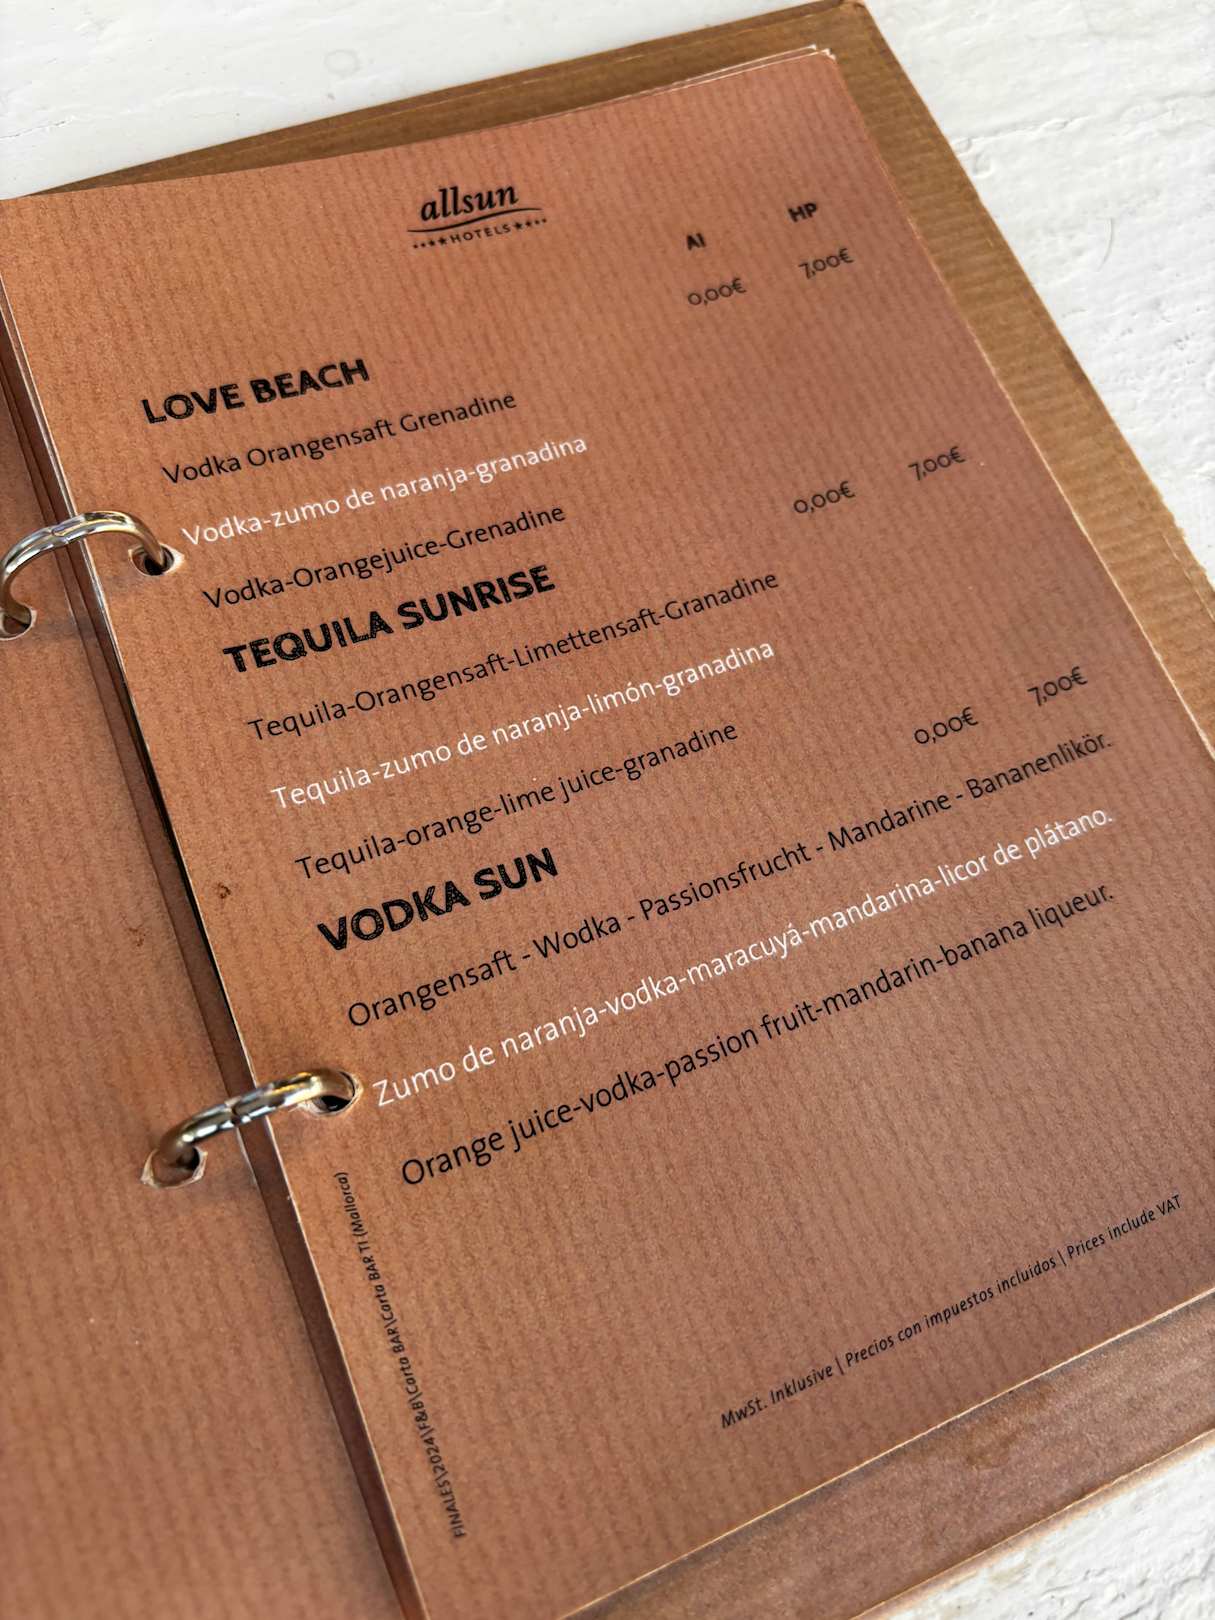 allsun
****HOTELS****
AI HP
0,00€ 7,00€
LOVE BEACH
Vodka Orangensaft Grenadine
Vodka-zumo de naranja-granadina
Vodka-Orangejuice-Grenadine
0,00€ 7,00€
TEQUILA SUNRISE
Tequila-Orangensaft-Limettensaft-Granadine
Tequila-zumo de naranja-limón-granadina
Tequila-orange-lime juice-granadine
0,00€ 7,00€
VODKA SUN
Orangensaft - Wodka - Passionsfrucht - Mandarine - Bananenlikör.
Zumo de naranja-vodka-maracuyá-mandarina-licor de plátano.
Orange juice-vodka-passion fruit-mandarin-banana liqueur.
MwSt. Inklusive | Precios con impuestos incluidos | Prices include VAT
FINALES\2024\F&B\Carta BAR\Carta BAR TI (Mallorca)